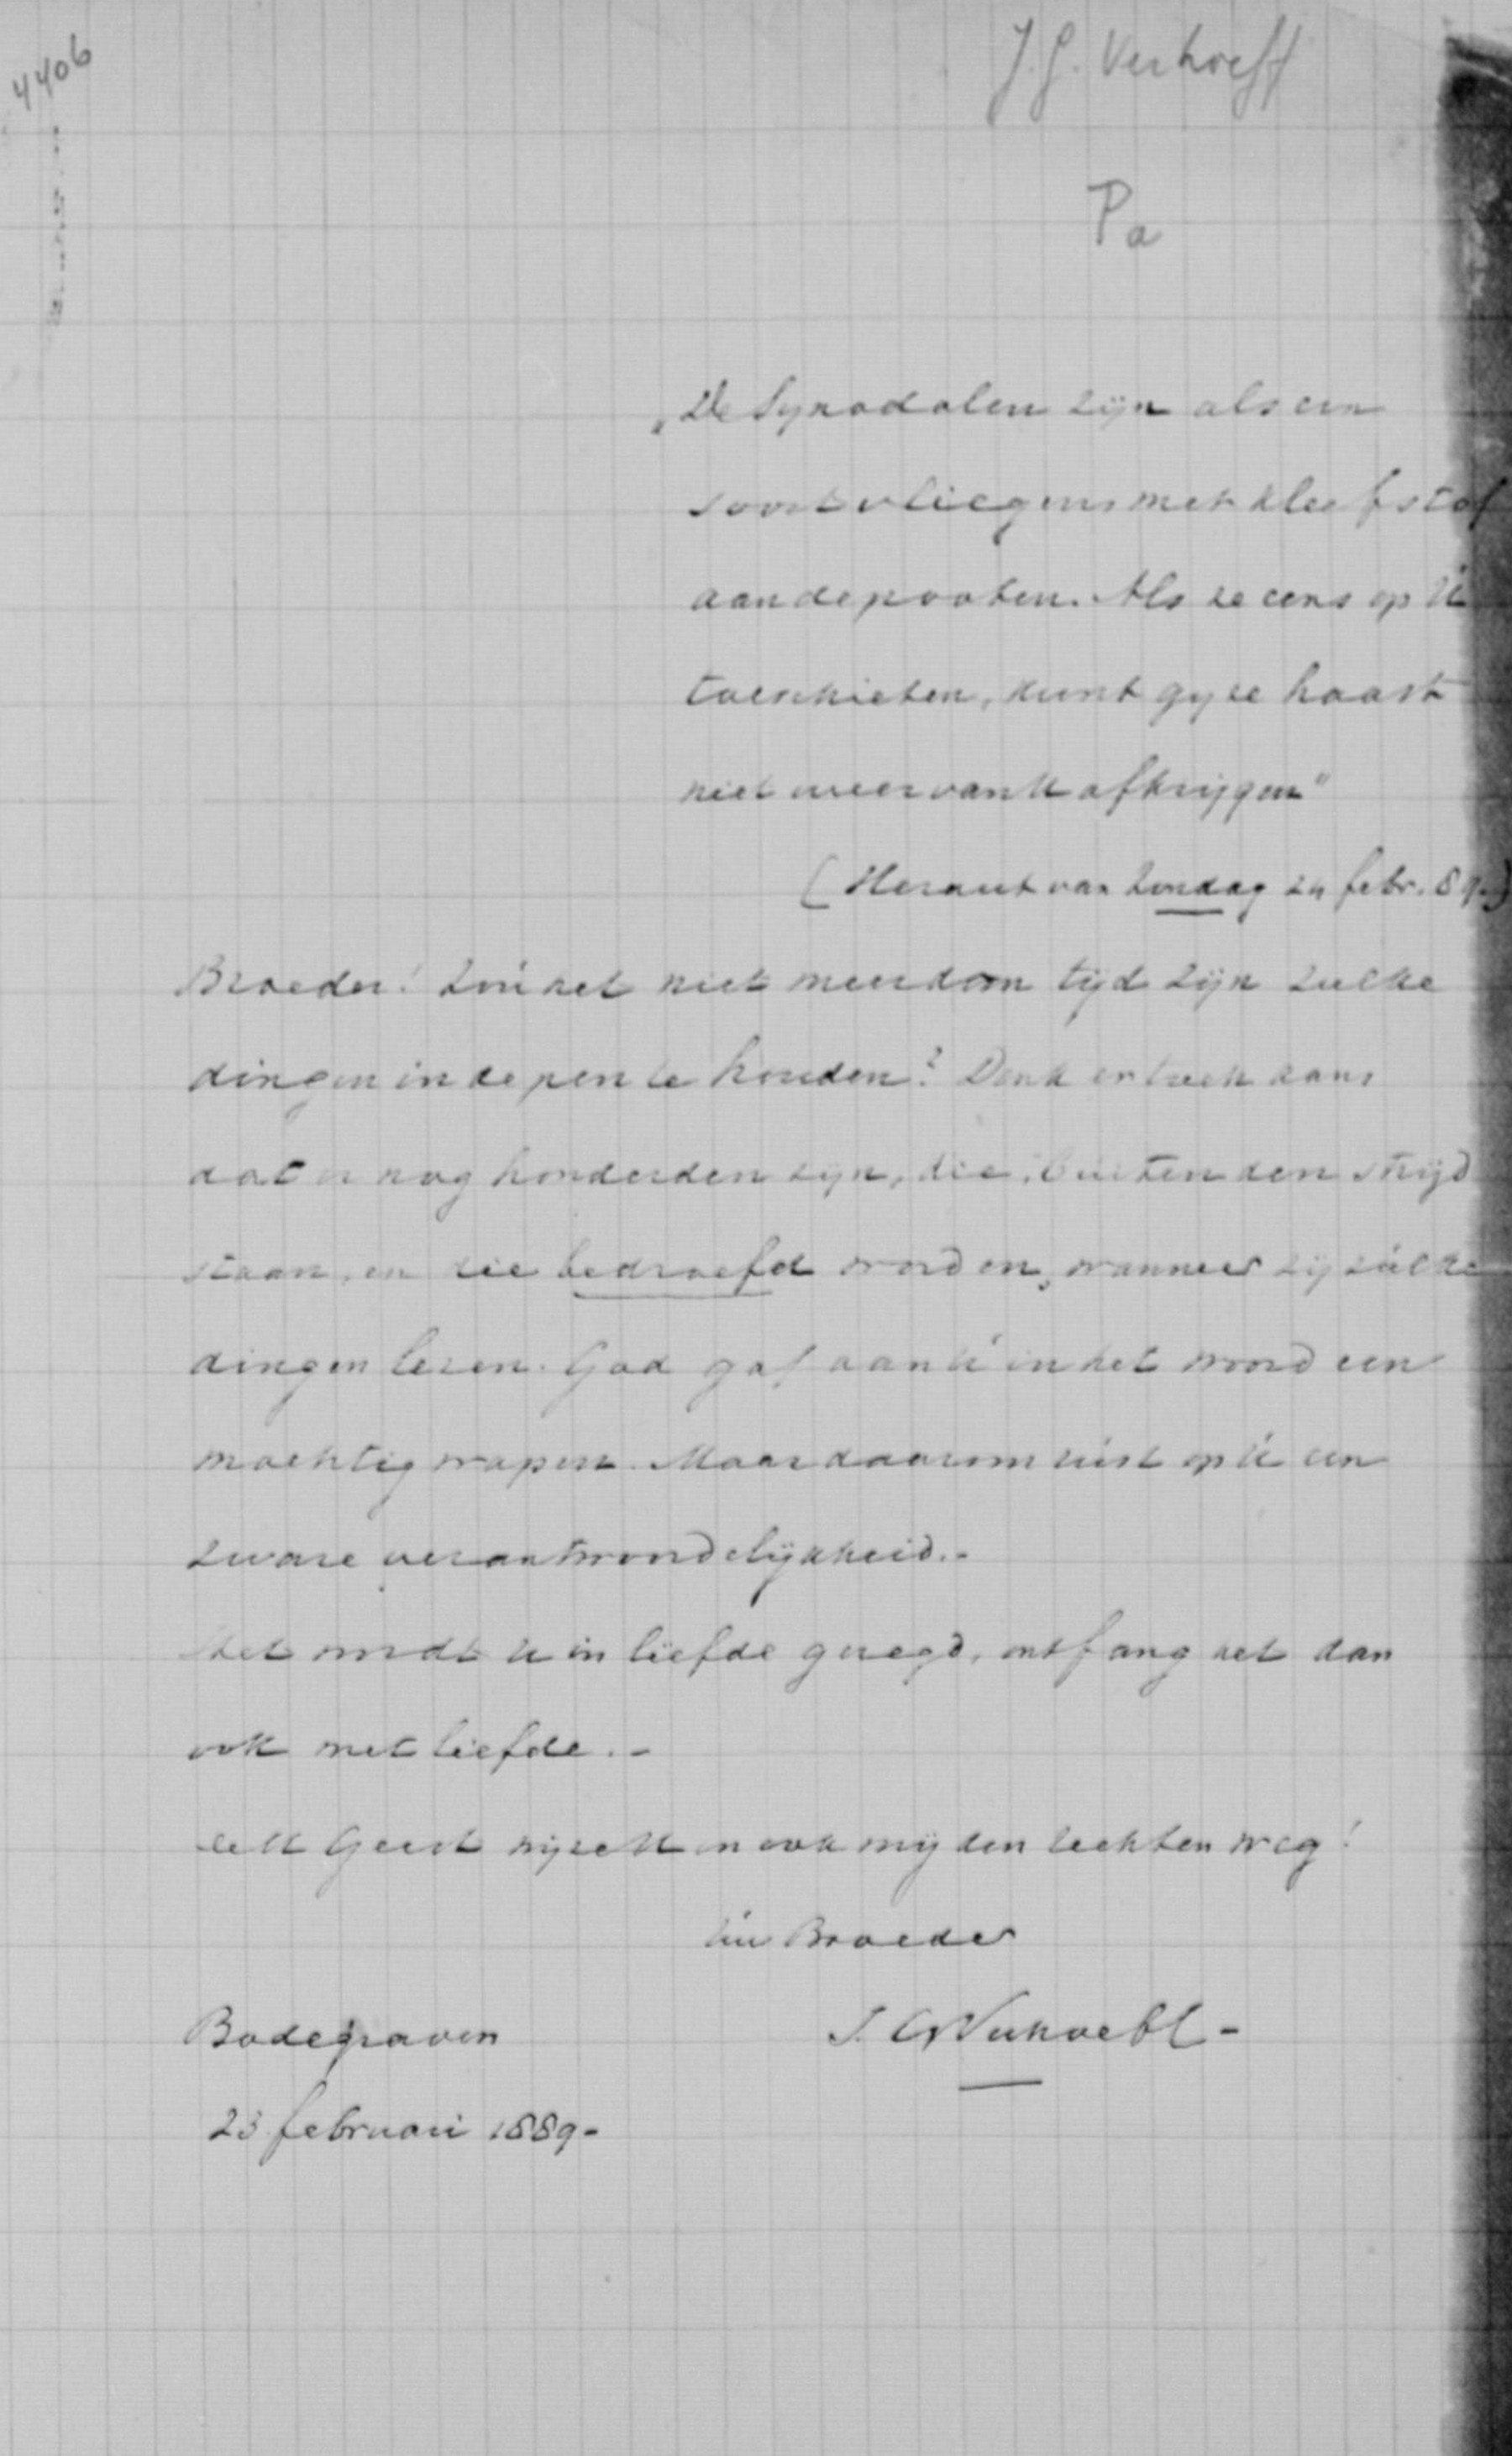 4406
J. G. Verhoeff
Pa
„De Synodalen zijn als een
soort vliegens met kleefstof
aan de pooten. Als ze eens op ú
toeschieten, kunt gij ze haast
niet meer van U afkrijgen"
(Heraut van Zondag 24 febr. 89.)
Broeder! Zoú het niet meer dan tijd zijn zulke
dingen in de pen te houden? Denk er toch aan,
dat er nog honderden zijn, die buiten den strijd
staan, en die bedroefd worden, wanneer zij zúlke
dingen lezen. God gaf aan ú in het woord een
machtig wapen. Maar daarom rúst op ú een
zware verantwoordelijkheid.-
Het wordt u in liefde gezegd, ontfang het dan
ook met liefde.-
Geest wijze U en ook mij den rechten weg!
Uw Broeder
J. G Verhoeff-
Bodegraven
23 februari 1889-